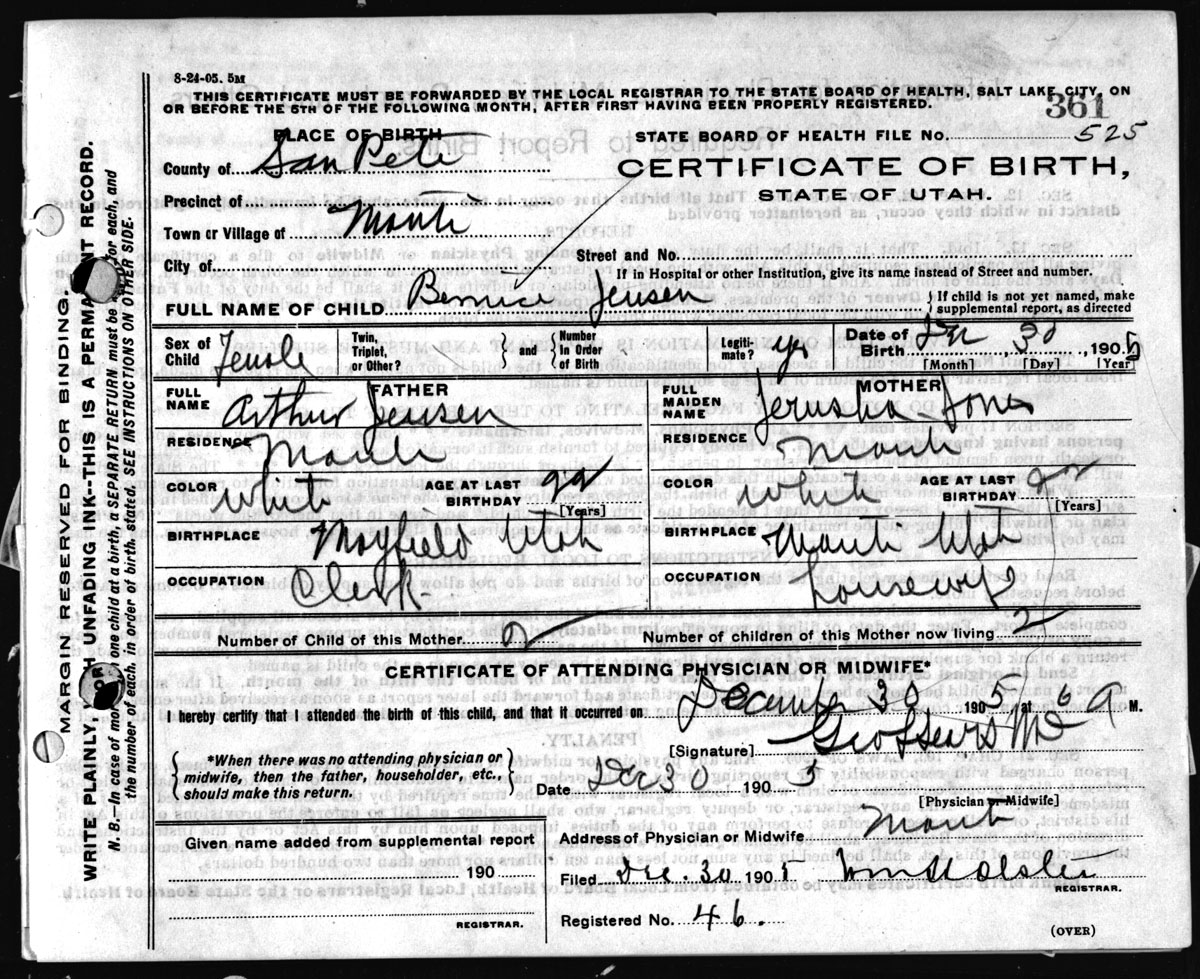 8-24-05. 5M
THIS CERTIFICATE MUST BE FORWARDED BY THE LOCAL REGISTRAR TO THE STATE BOARD OF HEALTH, SALT LAKE CITY, ON
OR BEFORE THE 5TH OF THE FOLLOWING MONTH, AFTER FIRST HAVING BEEN PROPERLY REGISTERED.
361
PLACE OF BIRTH
STATE BOARD OF HEALTH FILE NO. 525
County of San Pete
CERTIFICATE OF BIRTH,
STATE OF UTAH.
Precinct of
Town or Village of Manti
Street and No.
City of
If in Hospital or other Institution, give its name instead of Street and number.
FULL NAME OF CHILD Bernice Jensen } If child is not yet named, make supplemental report, as directed
Sex of Child Female Twin, Triplet, or Other? } and { Number in Order of Birth Legitimate? yes Date of Birth Dec 30, 1905
[Month] [Day] [Year]
FATHER
FULL NAME Arthur Jensen
RESIDENCE Manti
COLOR White AGE AT LAST BIRTHDAY
[Years]
BIRTHPLACE Mayfield Utah
OCCUPATION Clerk
MOTHER
FULL MAIDEN NAME Jerusha Jones
RESIDENCE Manti
COLOR White AGE AT LAST BIRTHDAY
[Years]
BIRTHPLACE Manti Utah
OCCUPATION housewife
Number of Child of this Mother 2 Number of children of this Mother now living 2
CERTIFICATE OF ATTENDING PHYSICIAN OR MIDWIFE*
I hereby certify that I attended the birth of this child, and that it occurred on December 30 1905 at 6 A M.
{ *When there was no attending physician or midwife, then the father, householder, etc., should make this return. }
[Signature] Geo L Sears MD
Date Dec 30 1905
[Physician or Midwife]
Address of Physician or Midwife Manti
Given name added from supplemental report
190
REGISTRAR.
Filed Dec. 30 1905
REGISTRAR.
Registered No. 46.
(OVER)
MARGIN RESERVED FOR BINDING.
WRITE PLAINLY, WITH UNFADING INK--THIS IS A PERMANENT RECORD.
N. B.—In case of more than one child at a birth, a SEPARATE RETURN must be made for each, and
the number of each, in order of birth, stated. SEE INSTRUCTIONS ON OTHER SIDE.